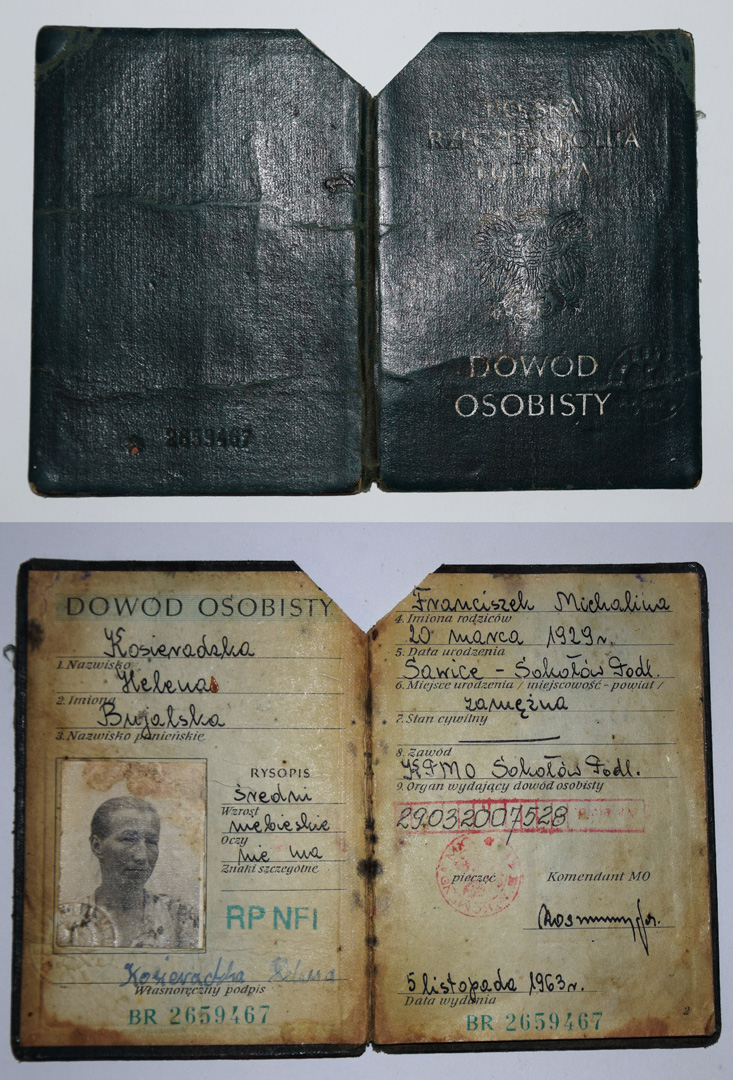 POLSKA
RZECZPOSPOLITA
LUDOWA
DOWÓD
OSOBISTY
2659467
DOWÓD OSOBISTY
Kosieradzka
1. Nazwisko
Helena
2. Imiona
Bujalska
3. Nazwisko panieńskie
RYSOPIS
średni
Wzrost
niebieskie
Oczy
nie ma
Znaki szczególne
RP NFI
Kosieradzka Helena
Własnoręczny podpis
BR 2659467
Franciszek Michalina
4. Imiona rodziców
20 marca 1929r.
5. Data urodzenia
Sawice - Sokołów Podl.
6. Miejsce urodzenia / miejscowość - powiat /
zamężna
7. Stan cywilny
8. Zawód
KPMO Sokołów Podl.
9. Organ wydający dowód osobisty
29032007528
pieczęć
Komendant MO
5 listopada 1963r.
Data wydania
BR 2659467
2